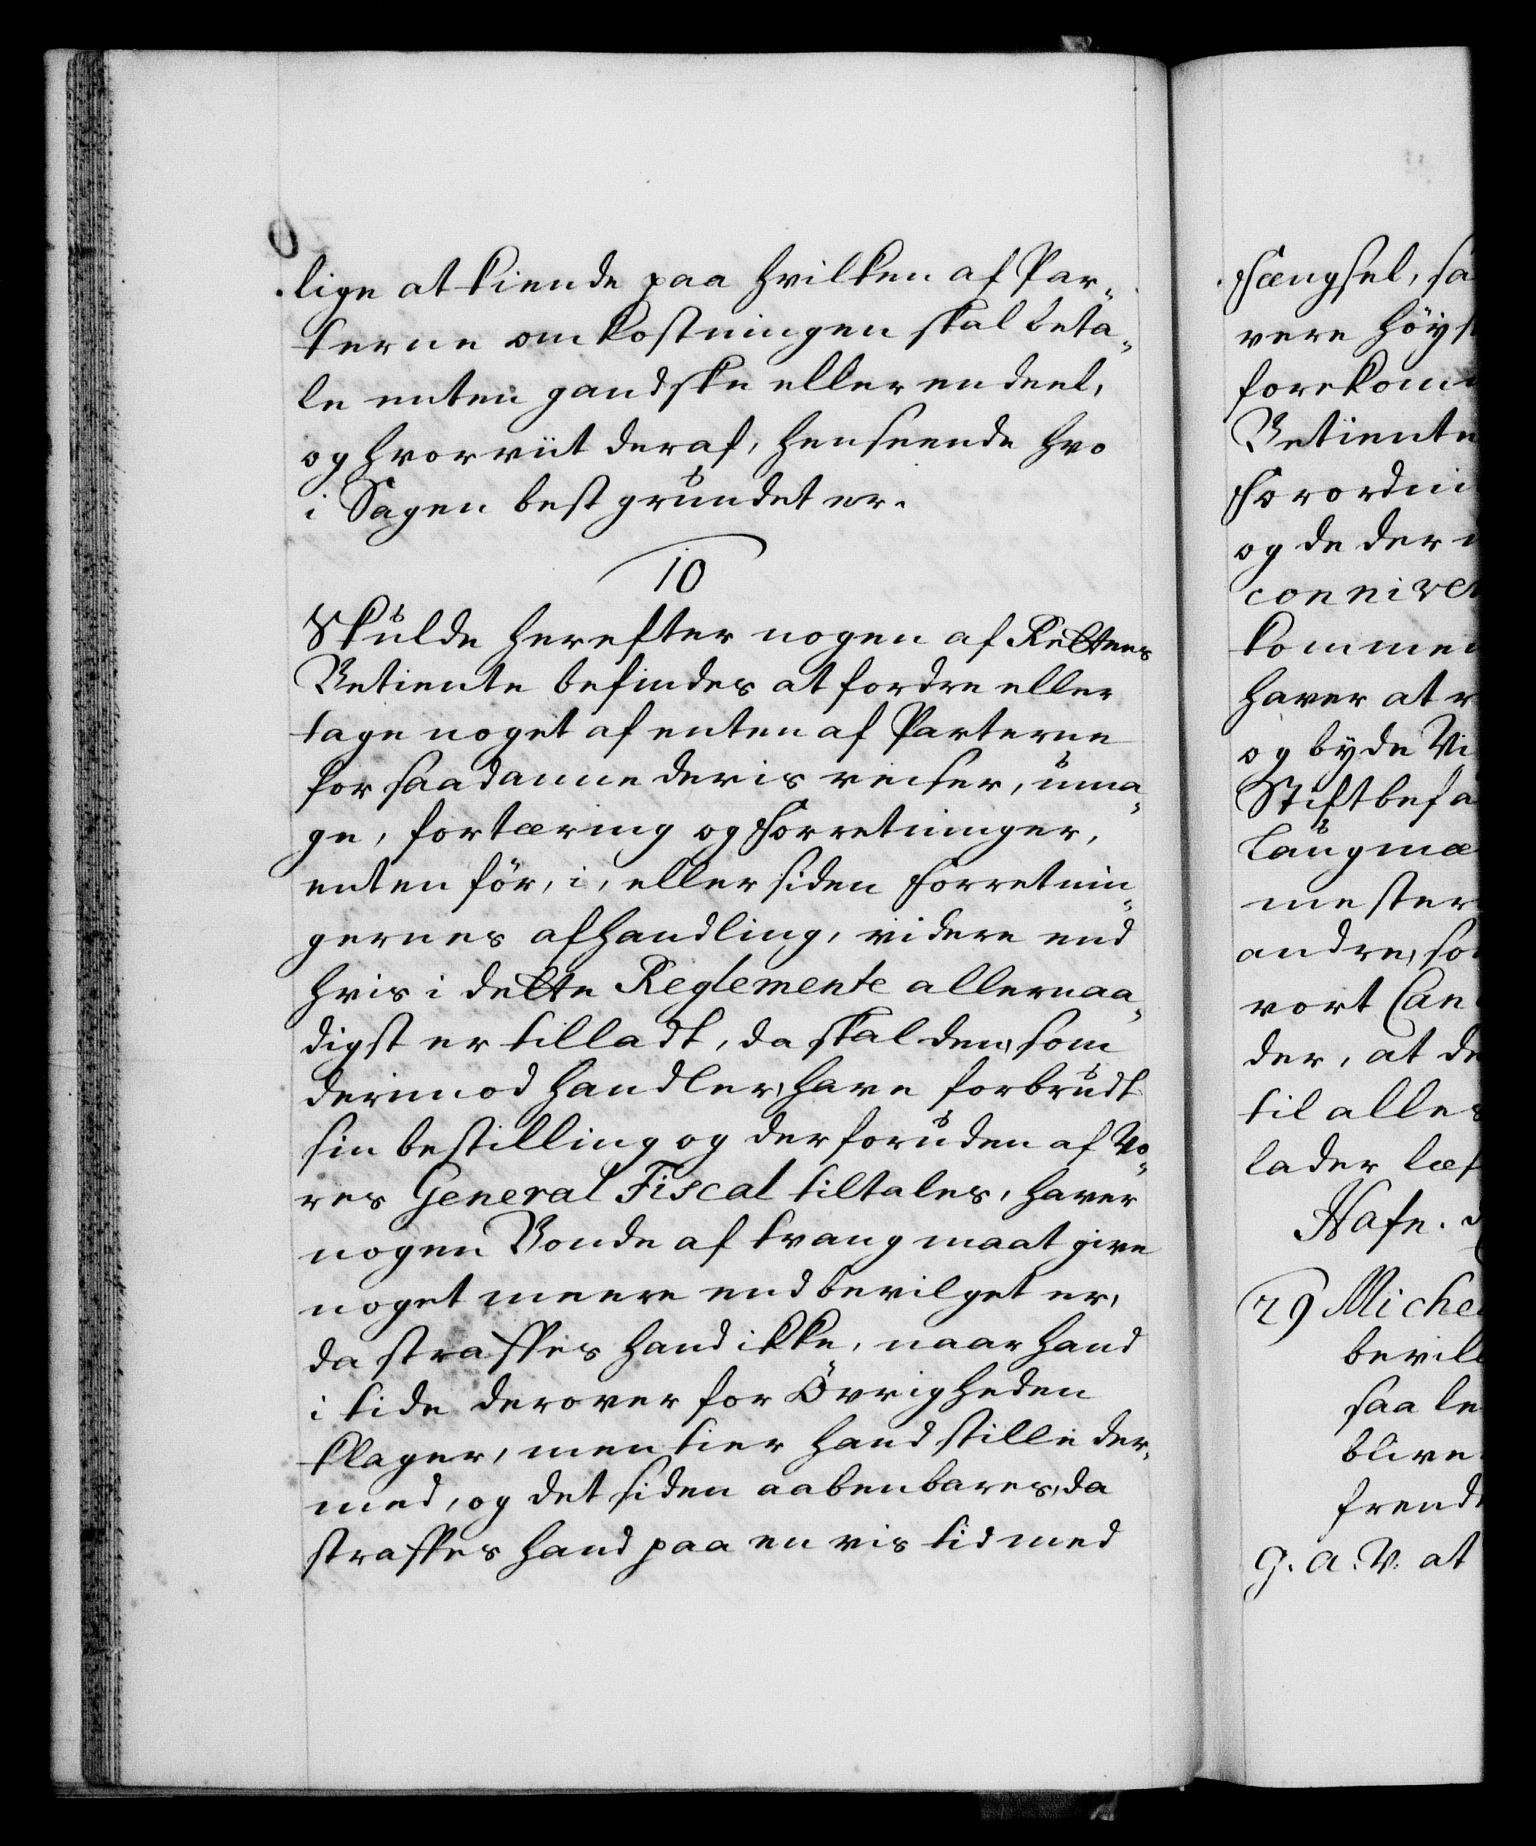 lige at kiende paa hvilken af Par-
terne omkostningen skal beta-
le enten gandske eller en deel,
og hvor viit deraf, henseende hvo
i Sagen best grundet er.
10
Skulde herefter nogen af Rettens
Betiente befindes at fordre eller
tage noget af enten af Parterne
for saadanne deris reiser, uma-
ge, fortæring og Forretninger,
enten för, i, eller siden Forretnin-
gernes afhandling, videre end
hvis i dette Reglemente allernaa-
digst er tilladt, da skal den, som
derimod handler, have forbrudt
sin bestilling og der foruden af Vo-
res General Fiscal tiltales, haver
nogen Bonde af tvang maat give
noget meere end bevilget er,
da straffes hand ikke, naar hand
i tide derover for Övrigheden
klager, men tier hand stille der-
med, og det siden aabenbares, da
straffes hand paa en vis tid med
Fængsel, saa
vere höyst
forekom
Betiente
Forordni
og de der
connivere
kommen
haver at
og byde Vi
Stiftbefa
Laugmæ
mester
andre, so
vort Can
der, at de
til alles
lader læs
Hafn.
29 Miche
bevill
saa le
blive
frend
G. A. V. at